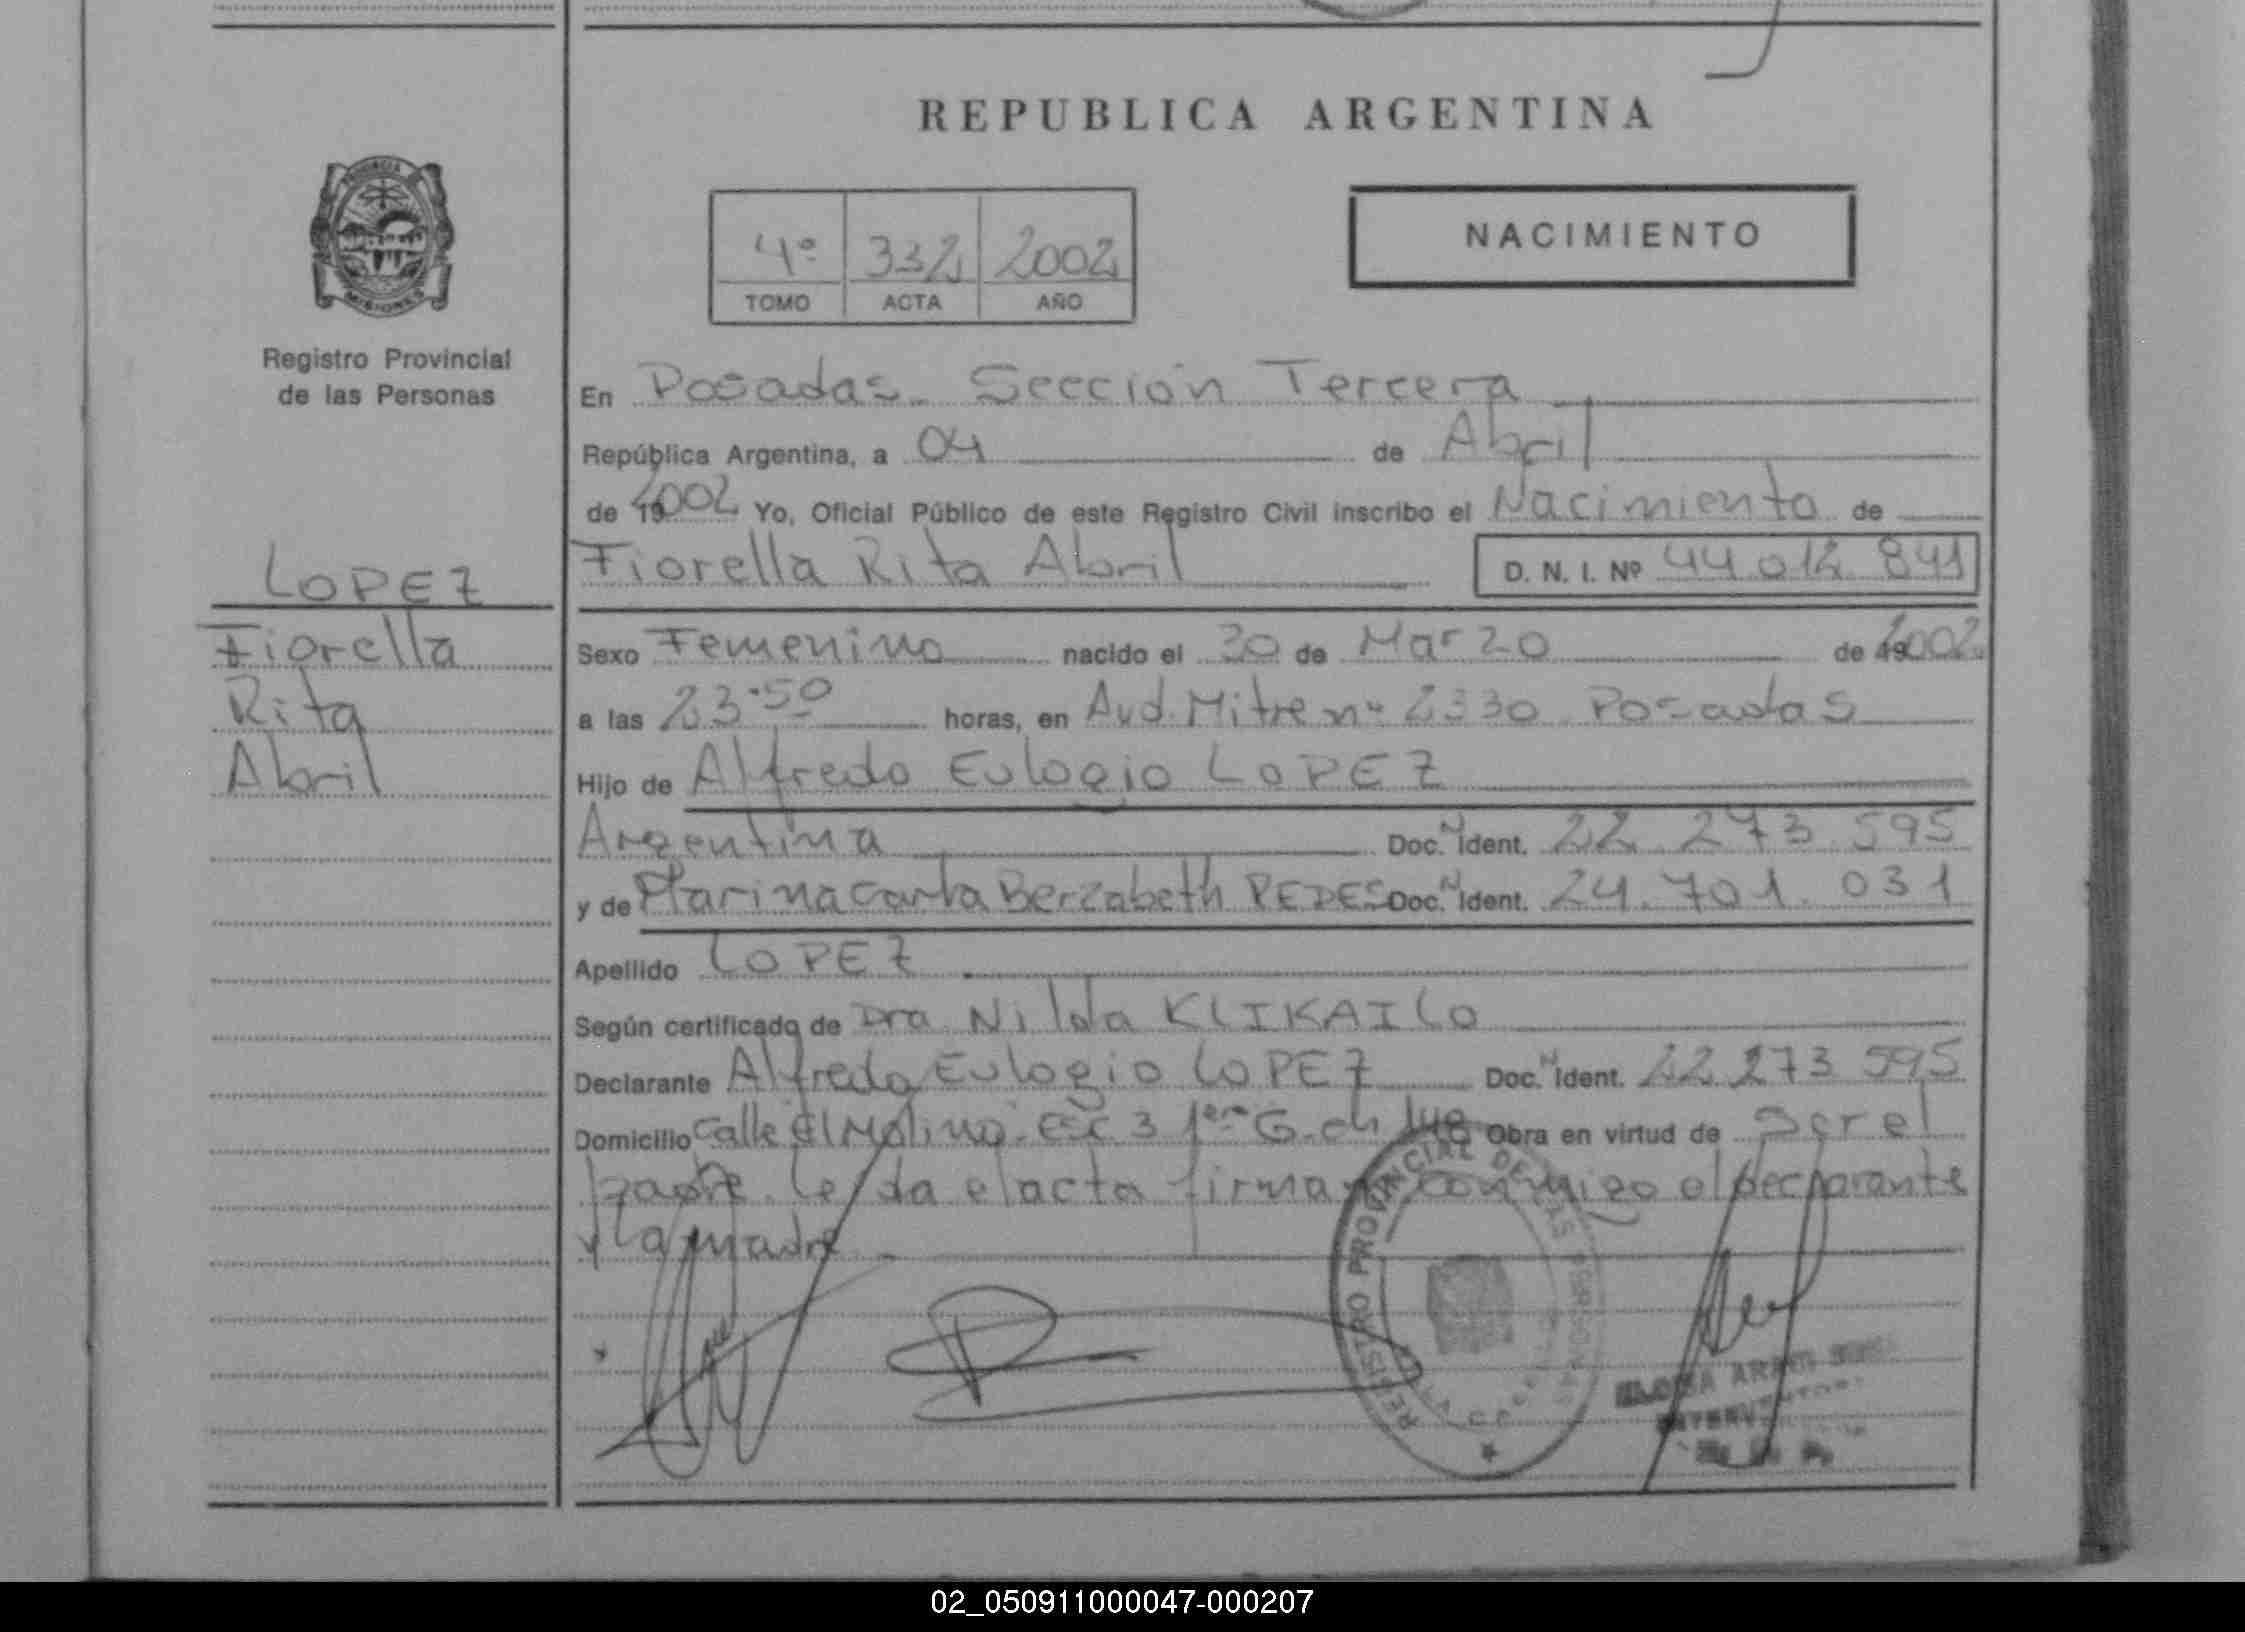 REPUBLICA ARGENTINA
PROVINCIA
MISIONES
Registro Provincial
de las Personas
4º 332 2002
TOMO ACTA AÑO
NACIMIENTO
LOPEZ
Fiorella
Rita
Abril
En Posadas. Sección Tercera
República Argentina, a 04 de Abril
de 192002 Yo, Oficial Público de este Registro Civil inscribo el Nacimiento de
Fiorella Rita Abril D. N. I. Nº 44 012 841
Sexo Femenino nacido el 30 de Marzo de 192002
a las 23.50 horas, en Avd. Mitre nº 2330 Posadas
Hijo de Alfredo Eulogio LOPEZ
Argentina Doc. N Ident. 22 273 595
y de Marina Carla Berzabeth PEDES Doc. N Ident. 24.701.031
Apellido LOPEZ
Según certificado de Dra Nilda KLIKAILO
Declarante Alfredo Eulogio LOPEZ Doc. N Ident. 22 273 595
Domicilio Calle El Molino 3 G. ch 148 Obra en virtud de Ser el
padre. leida el acta firman conmigo el declarante
y la madre.
REGISTRO PROVINCIAL DE LAS PERSONAS
02_050911000047-000207